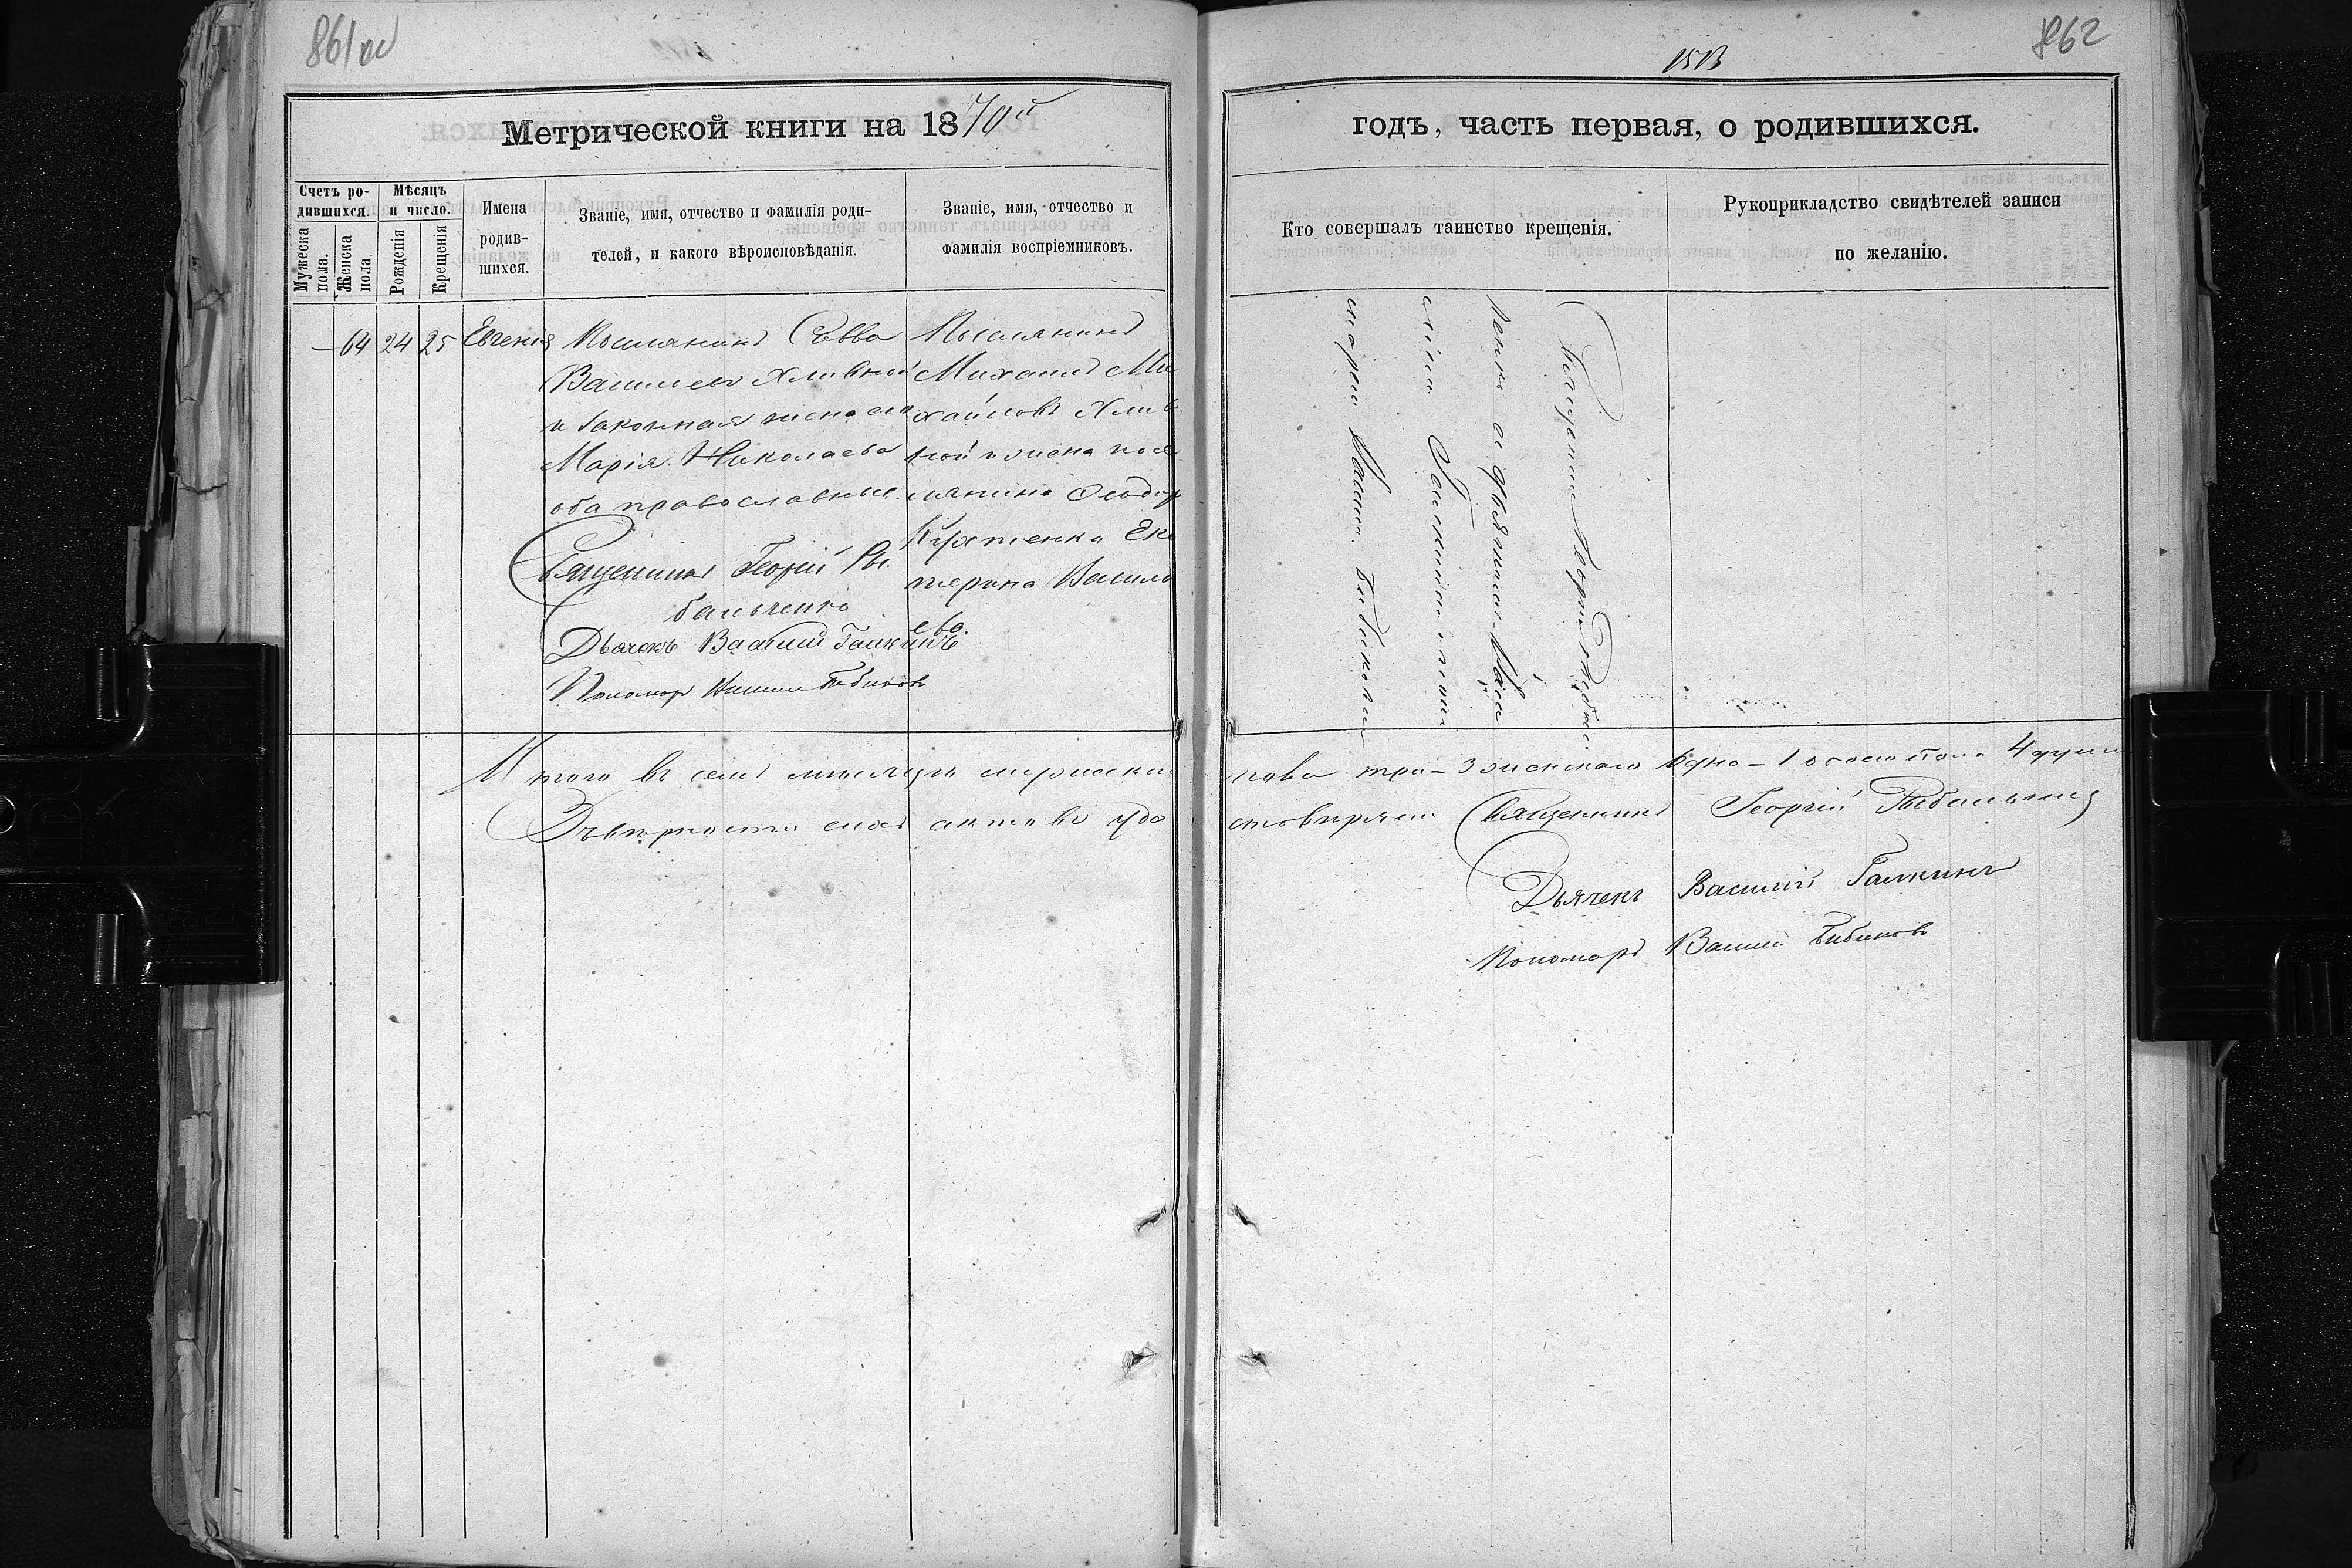 861об
862
1513
Метрической книги на 1870й
годъ, часть первая, о родившихся.
Счетъ ро-
дившихся.
Мужеска
пола.
Женска
пола.
Мѣсяцъ
и число.
Рожденія
Крещенія
Имена
родив-
шихся.
Званіе, имя, отчество и фамилія роди-
телей, и какого вѣроисповѣданія.
Званіе, имя, отчество и
фамилія воспріемниковъ.
Кто совершалъ таинство крещенія.
Рукоприкладство свидѣтелей записи
по желанію.
— 64 24 25 Евгенія
Поселянинъ Савва
Васильевъ Хливной
и законная жена его
Марія Николаева
оба православные.
Священникъ Георгій Ры
бальченко
Дьячокъ Василий Галкинъ
Пономар Бибиков
Поселянинъ
Михаилъ Ми
хайловъ Хлив
ной и жена посе
лянина Ѳеодор
Ека
терина Василь
ева.
Священникъ Георгій Рыбаль
ченко съ дьячкомъ Васи
ліемъ Галкинымъ и поно
маремъ Васил. Бибиковым
Итого въ семъ мѣсяцѣ мужеска
пола три – 3 женскаго одно – 1 обоего пола 4 души
Вѣрность сихъ актовъ удо
стовѣряем Священникъ Георгій Рыбальченко
Дьячекъ Василій Галкинъ
Пономарь Васили Бибиковъ